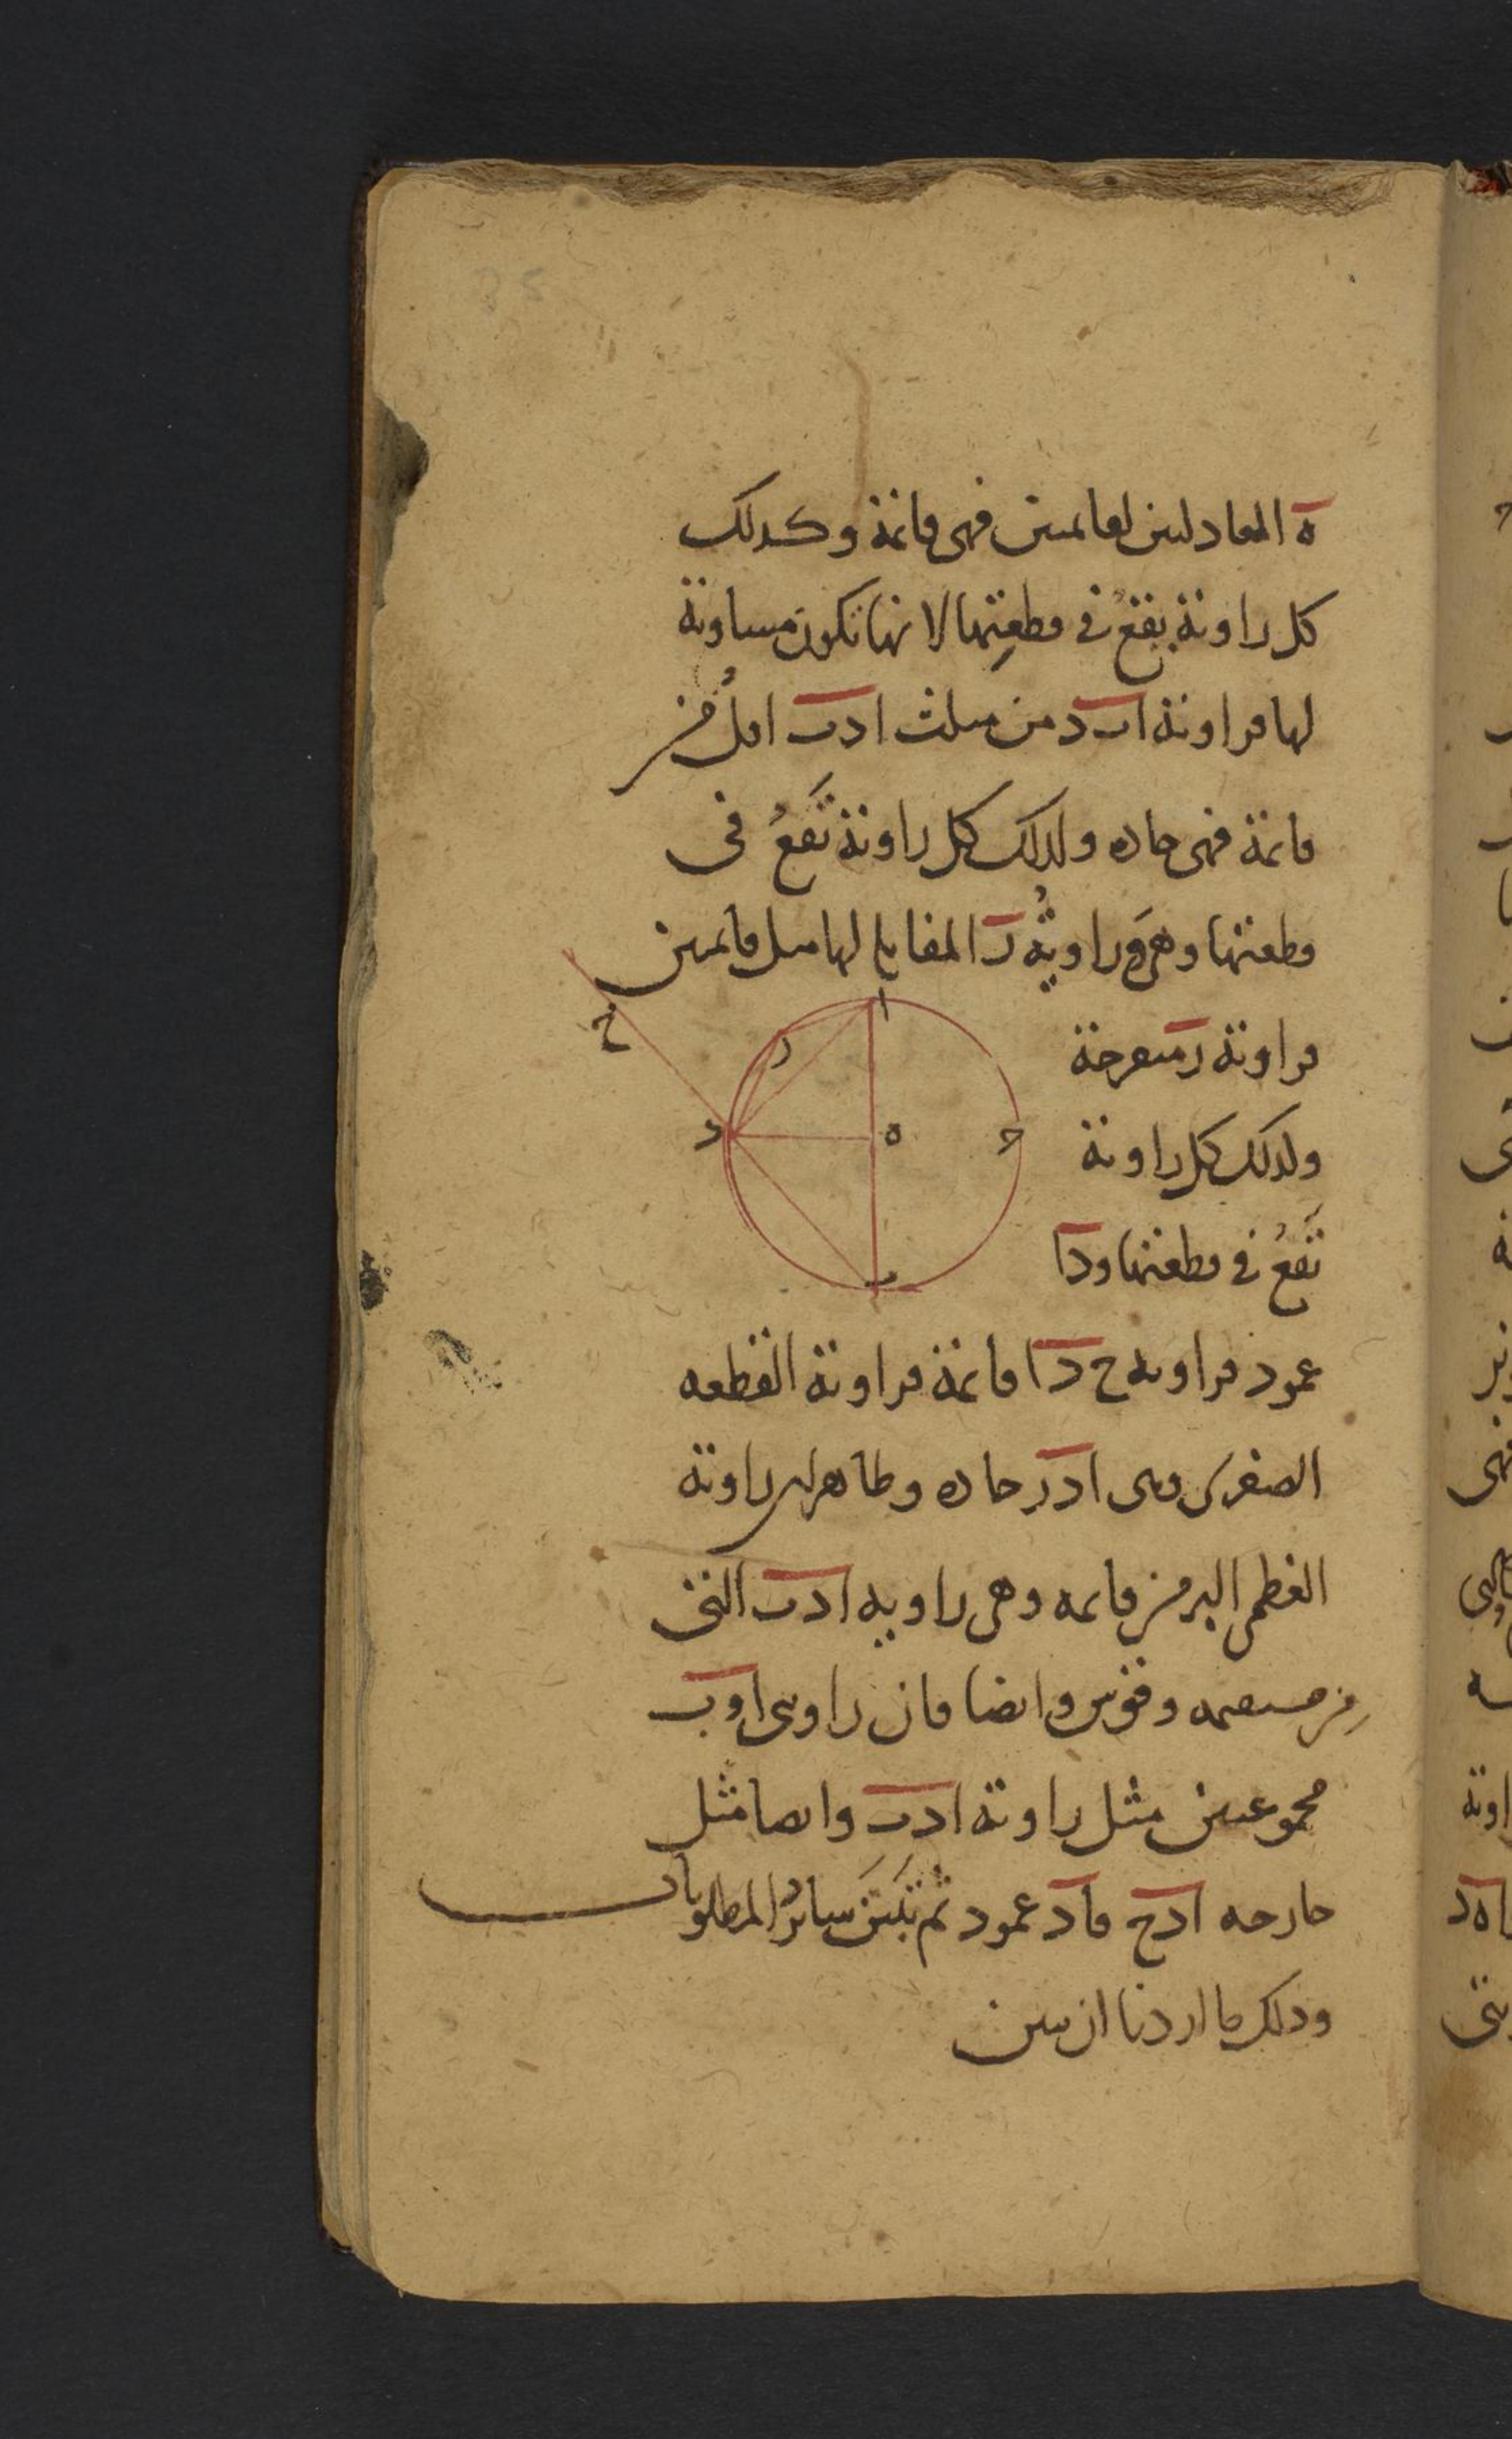 ه المعادلتين لقائمتين فهى قائمة وكذلك
كل زاوية يقع في قطعتها لانها تكون مساوية
لها فزاوية ا ب د من مثلث ا د ب اقل من
قائمة فهى حاده ولذلك كل زاوية تقع فى
قطعتها وهى وزاوية ر المقابل لها مثل قائمتين
فزاوية ر منفرجة
ولذلك كل زاوية
تقع في قطعتها و د ا
عمود فزاويه ح د ا قائمة فزاوية القطعه
الصغرى وهى ا د ر حاده وظاهر ان زاوية
العظمى اكبر من قائمه وهى زاويه ا د ب التى
من مستقيمه وقوس وايضا فان زاويتى ا و ب
مجموعتين مثل زاوية ا د ب وايضا مثل
خارجه ا د ح فا د عمود ثم تبين سائر المطلوبات
وذلك ما اردنا ان نبين
ا
ر
ح
د
ه
ج
ب